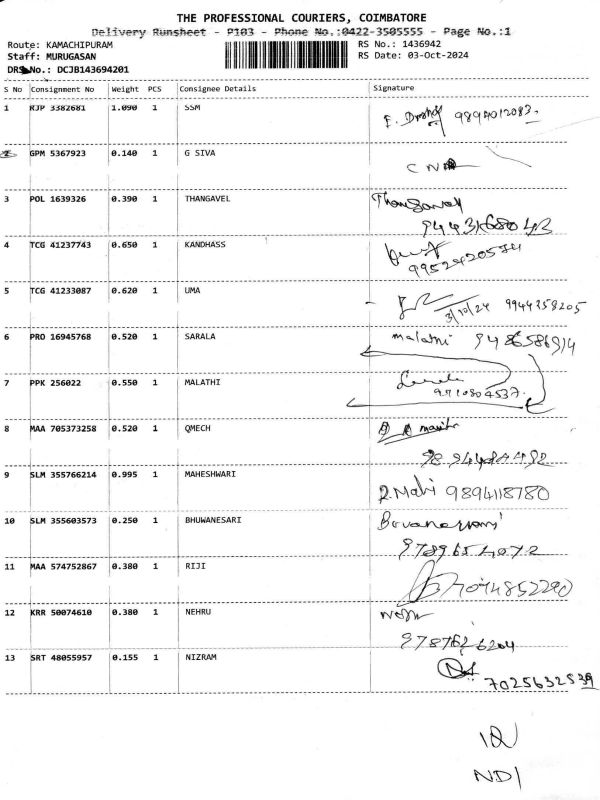 THE PROFESSIONAL COURIERS, COIMBATORE
Delivery Runsheet - P103 - Phone No.:0422-3505555 - Page No.:1
Route: KAMACHIPURAM RS No.: 1436942
Staff: MURUGASAN RS Date: 03-Oct-2024
DRS No.: DCJB143694201
S No Consignment No Weight PCS Consignee Details Signature
1 RJP 3382681 1.090 1 SSM
9894012083
2 GPM 5367923 0.140 1 G SIVA
3 POL 1639326 0.390 1 THANGAVEL Thangavel
9443168043
4 TCG 41237743 0.650 1 KANDHASS
9952420574
5 TCG 41233087 0.620 1 UMA
3/10/24 9944358205
6 PRO 16945768 0.520 1 SARALA malathi 9486586914
7 PPK 256022 0.550 1 MALATHI
8 MAA 705373258 0.520 1 QMECH
9 SLM 355766214 0.995 1 MAHESHWARI
R.Mahi 9894118780
10 SLM 355603573 0.250 1 BHUWANESARI
9789654072
11 MAA 574752867 0.380 1 RIJI
12 KRR 50074610 0.380 1 NEHRU
9787626204
13 SRT 48055957 0.155 1 NIZRAM
7025632539
ND1